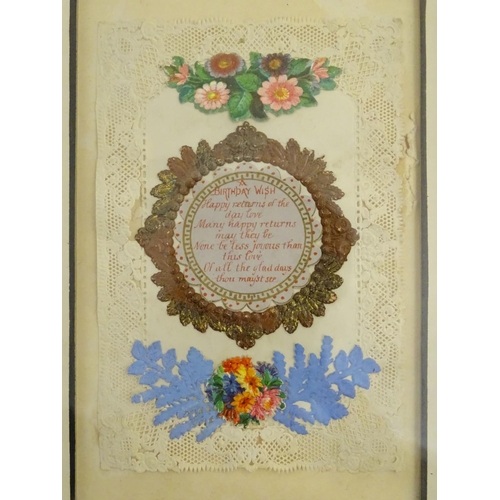 A
BIRTHDAY WISH
Happy returns of the
day love
Many happy returns
may they be
None be less joyous than
this love
Of all the glad days
thou mayst see